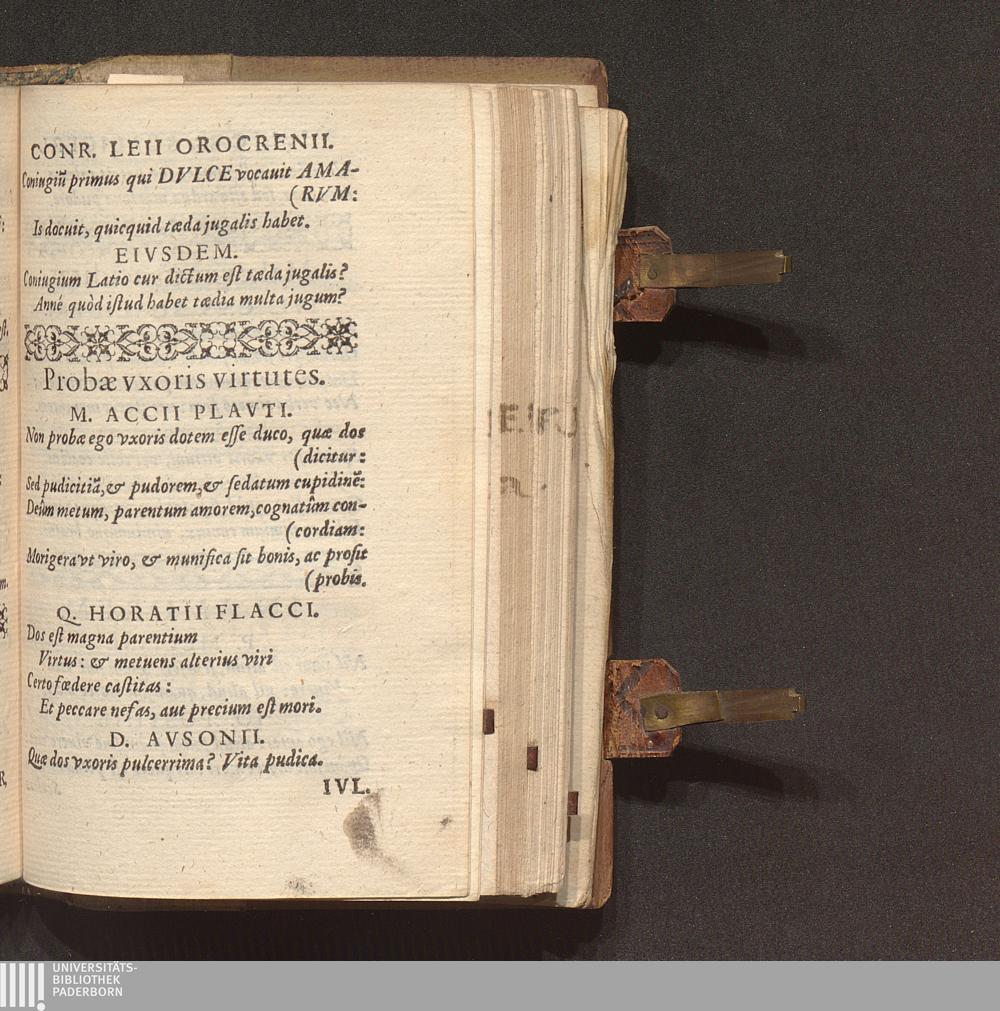 CONR. LEII OROCRENII.
Coniugiũ primus qui DVLCE vocauit AMA-
(RVM:
Is docuit, quicquid tæda jugalis habet.
EIVSDEM.
Coniugium Latio cur dictum est tæda jugalis?
Anné quòd istud habet tædia multa jugum?
Probæ vxoris virtutes.
M. ACCII PLAVTI.
Non probæ ego vxoris dotem esse duco, quæ dos
(dicitur:
Sed pudicitiã, & pudorem, & sedatum cupidinẽ:
Deûm metum, parentum amorem, cognatûm con-
(cordiam:
Morigera vt viro, & munifica sit bonis, ac prosit
(probis.
Q. HORATII FLACCI.
Dos est magna parentium
Virtus: & metuens alterius viri
Certo fœdere castitas:
Et peccare nefas, aut precium est mori.
D. AVSONII.
Quæ dos vxoris pulcerrima? Vita pudica.
IVL.
UNIVERSITÄTS-
BIBLIOTHEK
PADERBORN